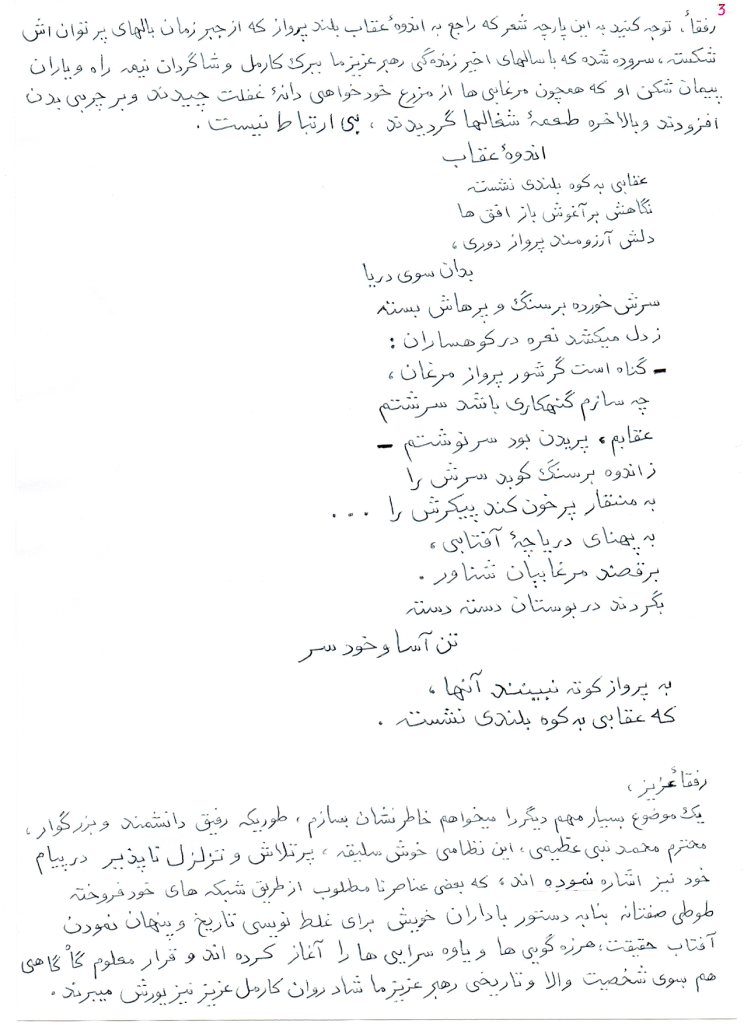 3
رفقأ، توجه کنید به این پارچه شعر که راجع به اندوهٔ عقاب بلند پرواز که از جبر زمان بالهای پر توان اش
شکسته، سروده شده که با سالهای اخیر زنده گی رهبر عزیز ما ببرک کارمل و شاگردان نیمه راه و یاران
پیمان شکن او که همچون مرغابی ها از مزرع خود خواهی دانهٔ غفلت چیدند و بر چربی بدن
افزودند و بالاخره طعمهٔ شغالها گردیدند، بی ارتباط نیست.
اندوهٔ عقاب
عقابی به کوه بلندی نشسته
نگاهش بر آغوش باز افق ها
دلش آرزومند پرواز دوری،
بدان سوی دریا
سرش خورده بر سنگ و پرهاش بسته
ز دل میکشد نعره در کوهساران :
ــ گناه است گر شور پرواز مرغان،
چه سازم گنهکاری باشد سرشتم
عقابم، پریدن بود سرنوشتم ــ
ز اندوه بر سنگ کوبد سرش را
به منقار پر خون کند پیکرش را ...
به پهنای دریاچهٔ آفتابی،
برقصند مرغابیان شناور.
بگردند در بوستان دسته دسته
تن آسا و خود سر
به پرواز کوته نبینند آنها،
که عقابی به کوه بلندی نشسته.
رفقأ عزیز،
یک موضوع بسیار مهم دیگر را میخواهم خاطر نشان بسازم، طوریکه رفیق دانشمند و بزرگوار،
محترم محمد نبی عظیمی، این نظامی خوش سلیقه، پر تلاش و تزلزل ناپذیر در پیام
خود نیز اشاره نموده اند، که بعضی عناصر نا مطلوب از طریق شبکه های خود فروخته
طوطی صفتانه بنا به دستور باداران خویش برای غلط نویسی تاریخ و پنهان نمودن
آفتاب حقیقت، هرزه گویی ها و یاوه سرایی ها را آغاز کرده اند و قرار معلوم گأ گاهی
هم بسوی شخصیت والا و تاریخی رهبر عزیز ما شاد روان کارمل عزیز نیز یورش میبرند.